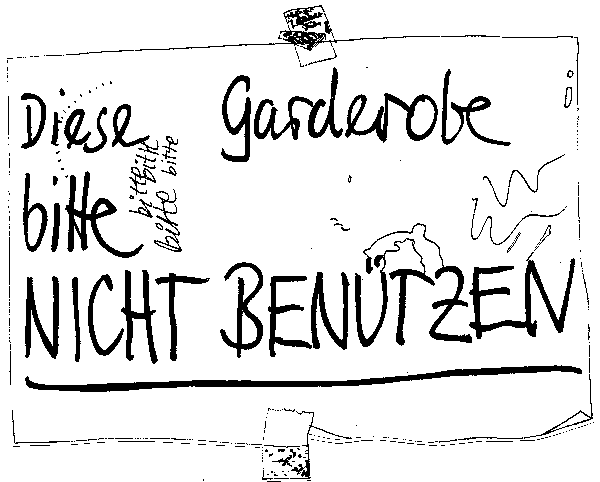 Diese Garderobe
bitte
NICHT BENÜTZEN
bitte
bitte
bitte
bitte
bitte